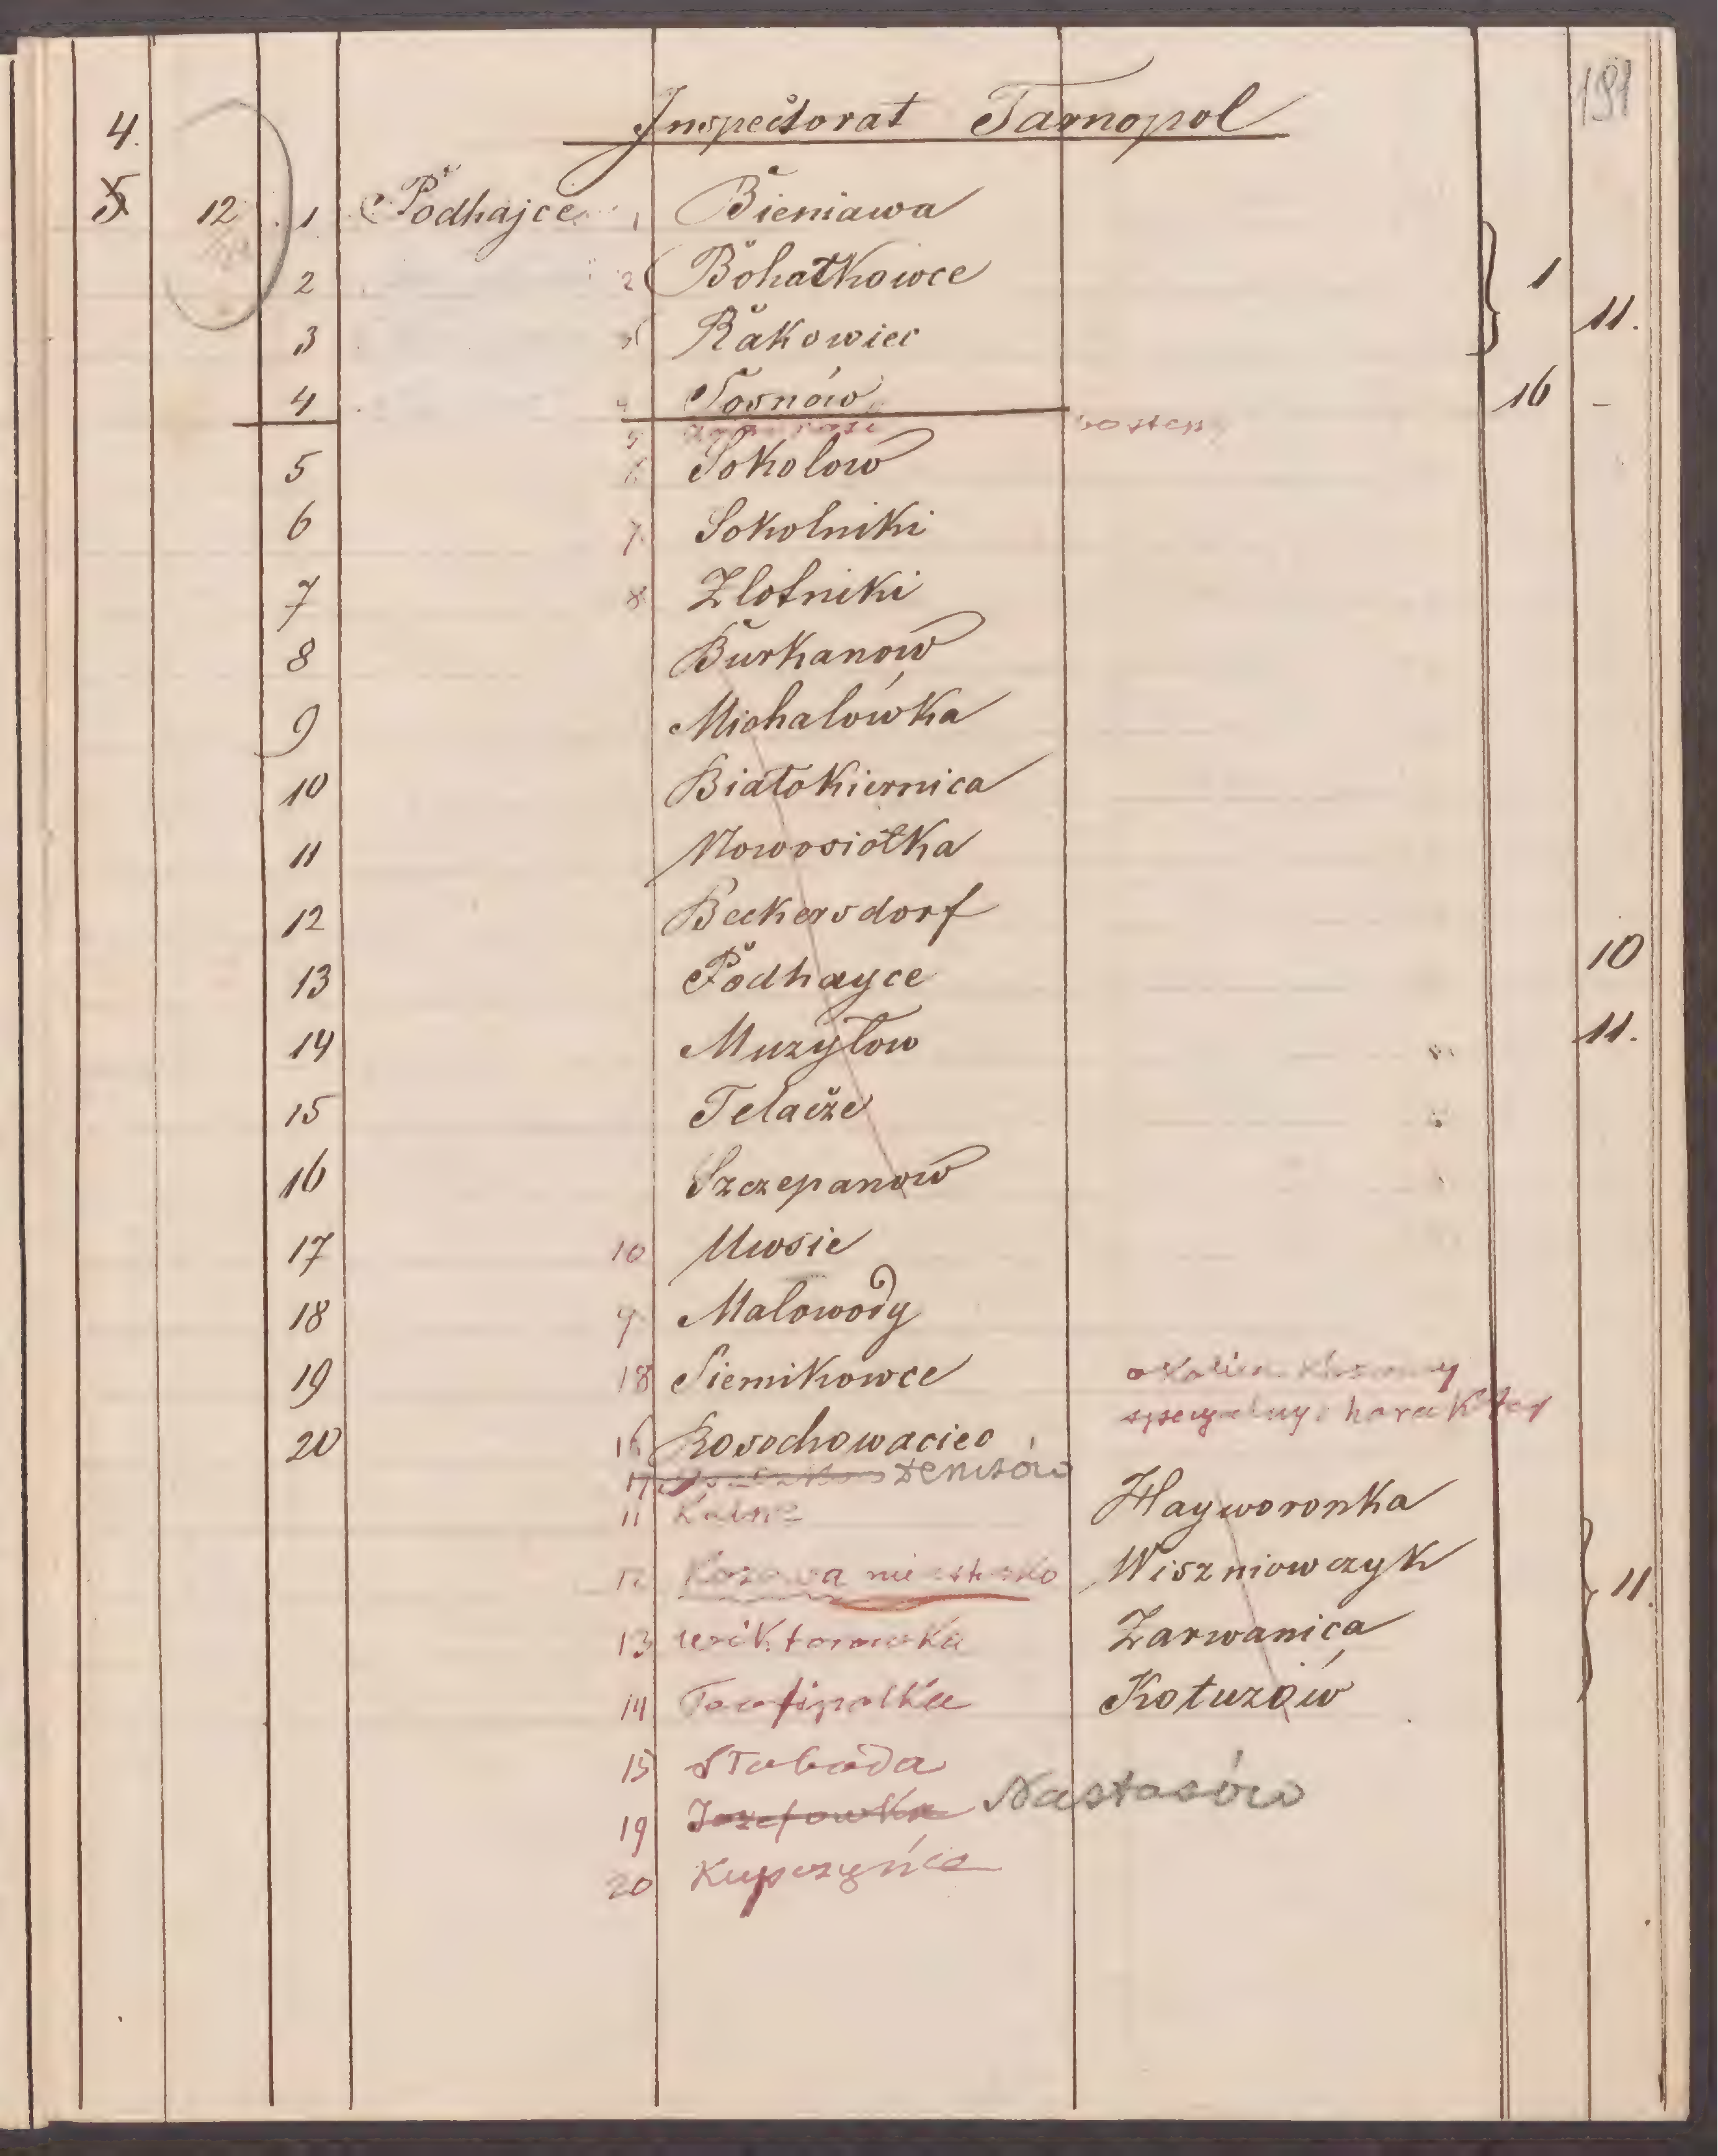 191
4. Inspectorat Tarnopol
5 12 1 Podhajce 1 Bieniawa
2 2 Bohatkowce 1
3 3 Rakowiec 11.
4 4 Sosnów 16 –
5
5 6 Sokolow
6 7 Sokolniki
7 8 Zlotniki
8 Burkanow
9 Michalówka
10 Białokiernica
11 Nowosiołka
12 Beckersdorf
13 Podhayce 10
14 Muzyłow 11.
15 Telacze
16 Szczepanow
17 10 Uwsie
18 9 Malowody
19 18 Siemikowce
20 16 Rosochowaciec
17 Denisów
Hayworonka
11
12 miastecko Wiszniowczyk 11.
13 Wiktorowka Zarwanica
14 Teofipolka Kotuzów
15 Słoboda
19 Jozefowka Nastasów
20 Kupczyńce